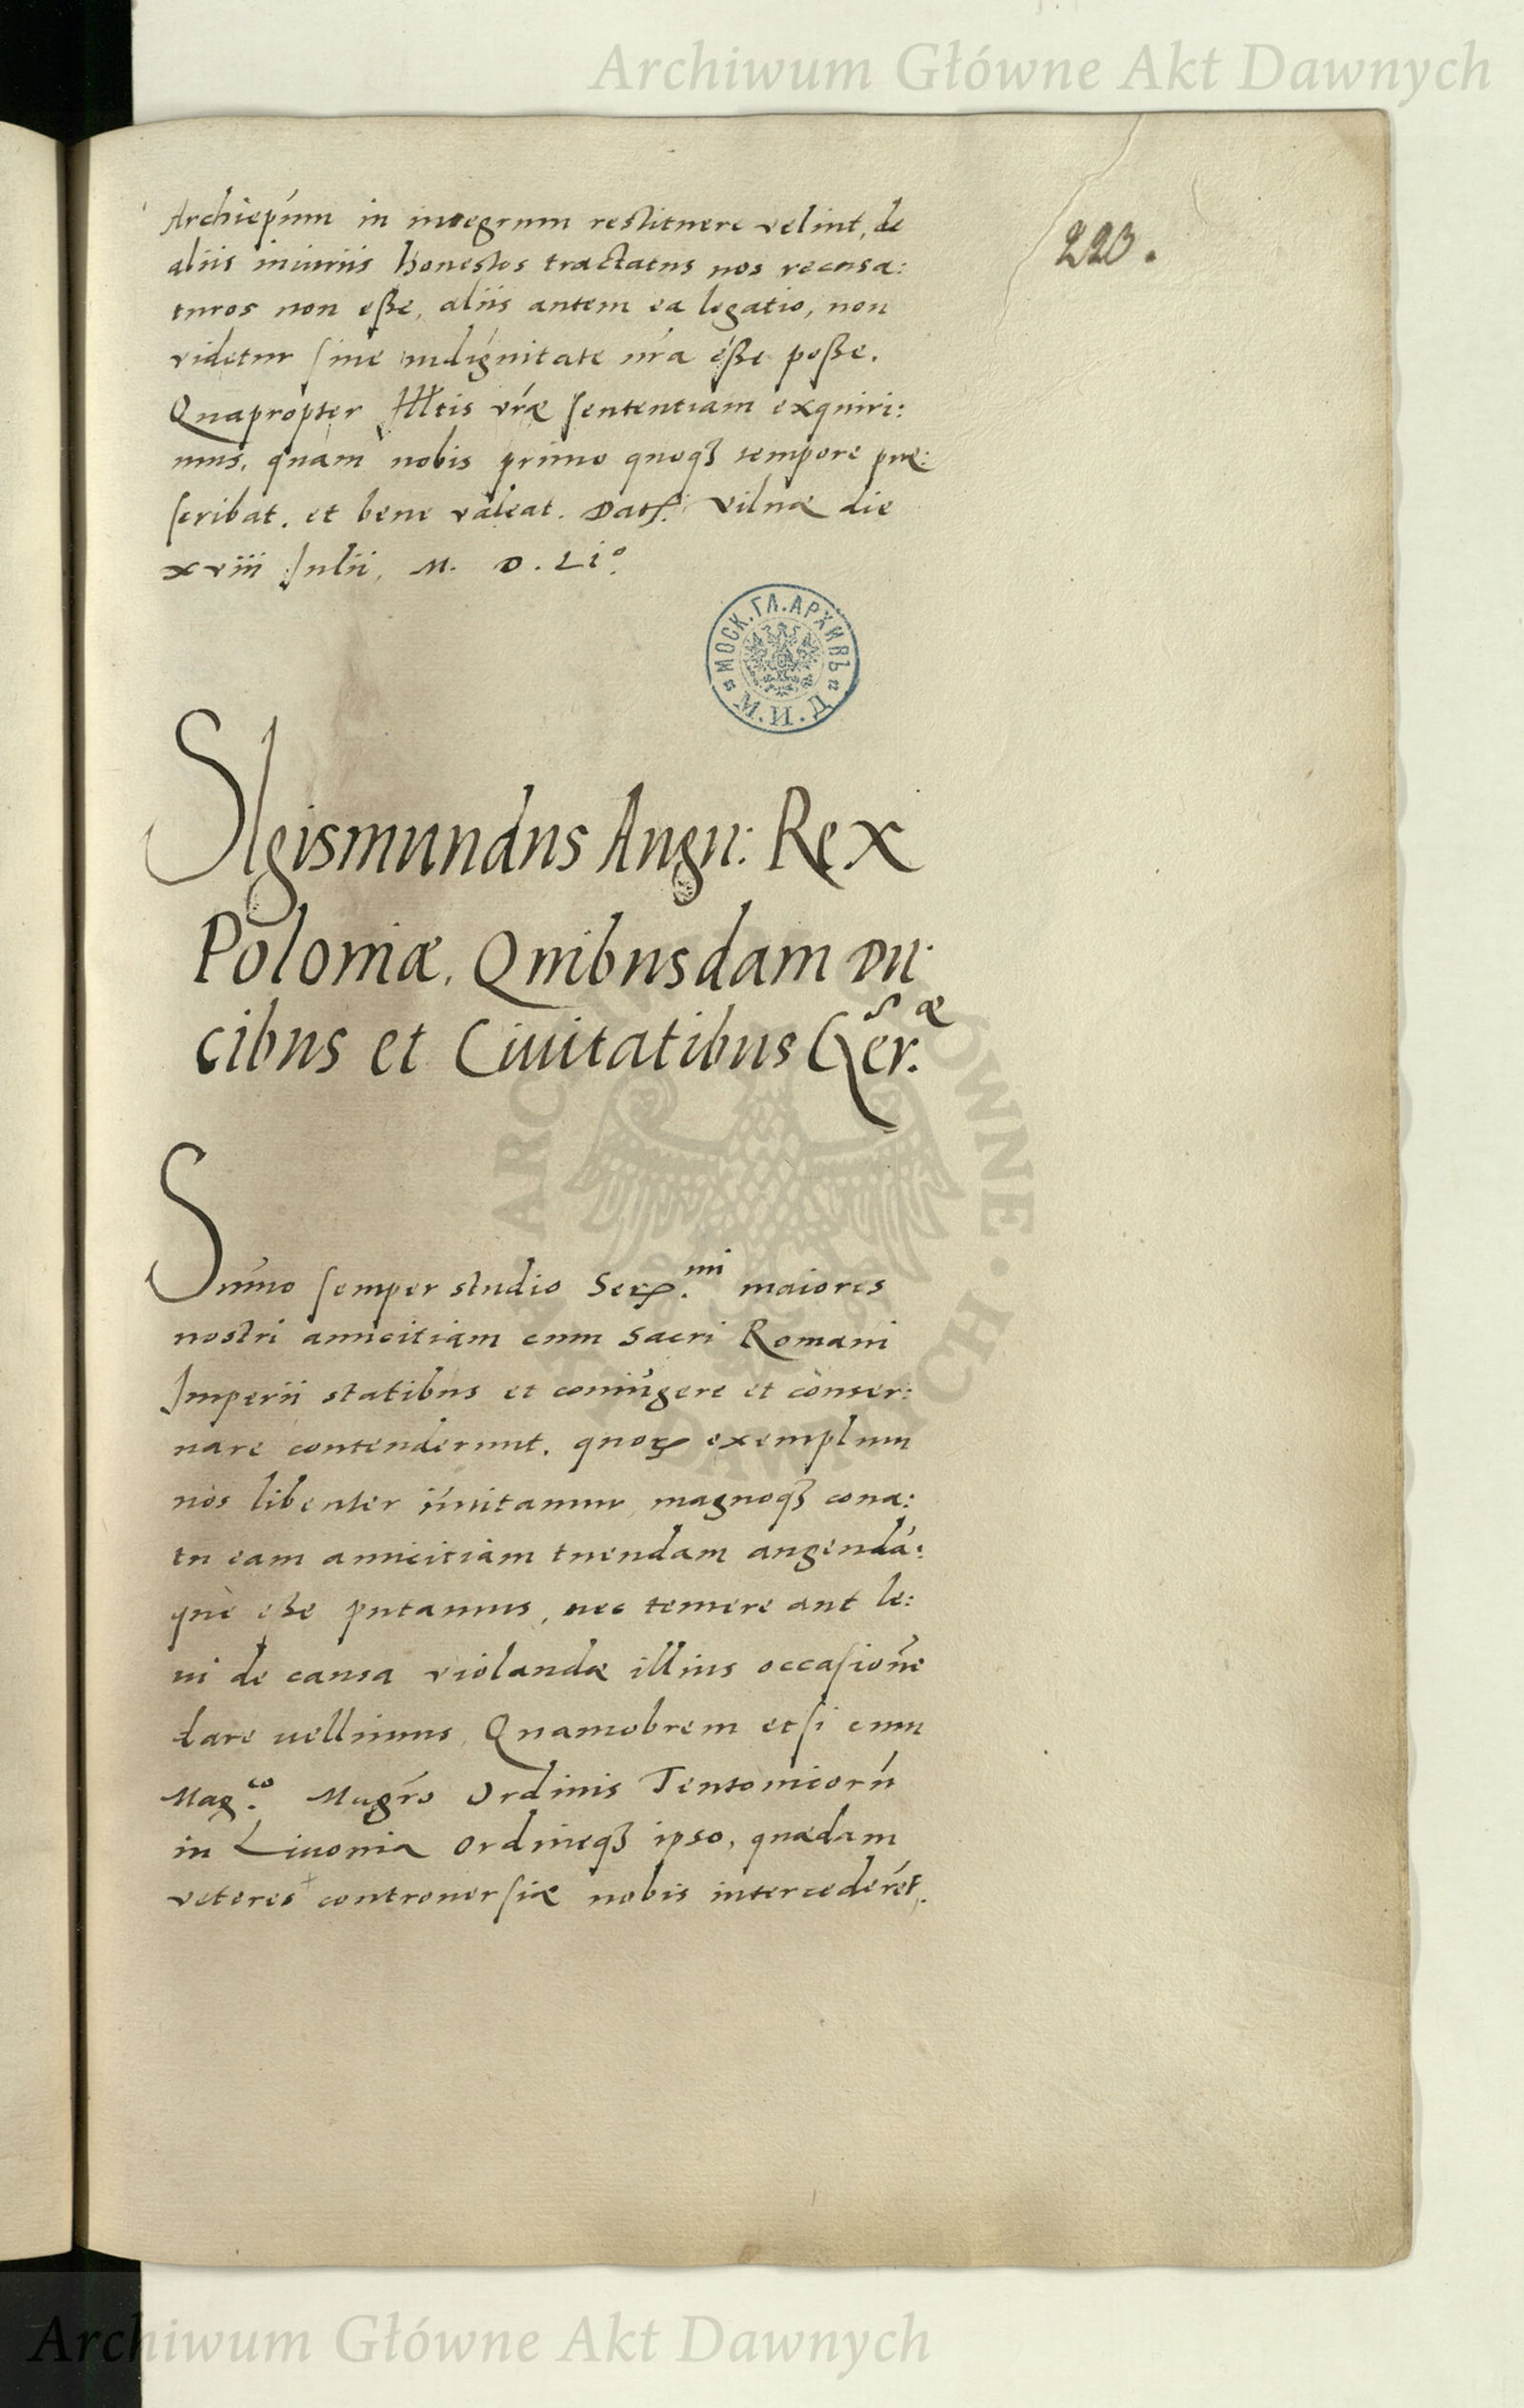 Archiwum Główne Akt Dawnych
223.
Archiep̃um in integrum restituere velint, de
aliis iniuriis honestos tractatus nos recusa:
turos non eße, aliis autem ea legatio, non
videtur sine indignitate nr̃a eße poße.
Quapropter Illtis vr̃æ sententiam exquiri:
mus, quam nobis primo quoqꝫ tempore præ:
scribat. et bene valeat. Dat. Vilnæ die
xviii Julii, M. D. Liº.
МОСК.ГЛ.АРХИВЪ
М.И.Д.
SIgismundus Augu: Rex
Poloniæ, Quibusdam Du:
cibus et Ciuitatibus Geræ.
Sum̃o semper studio Ser.mi maiores
nostri amicitiam cum Sacri Romani
Imperii statibus et coniungere et conser:
uare contenderunt. quoꝝ exemplum
nos libenter im̃itamur, magnoqꝫ cona:
tu eam amicitiam tuendam augendã:
que eße putamus, nec temere aut le:
ui de causa violandæ illius occasionẽ
dare uellimus, Quamobrem etsi cum
Mag.co Magr̃o Ordinis Teutonicorũ
in Liuonia Ordineqꝫ ipso, quædam
veteres controuersiæ nobis intercederẽt,
ARCHIWUM GŁÓWNE · AKT DAWNYCH ·
Archiwum Główne Akt Dawnych